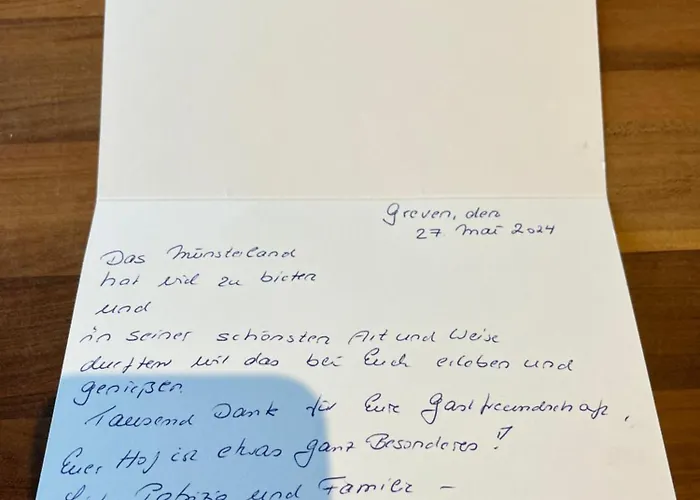 Greven, den
27. Mai 2024
Das Münsterland
hat viel zu bieten
und
in seiner schönsten Art und Weise
durften wir das bei Euch erleben und
genießen.
Tausend Dank für Eure Gastfreundschaft,
Euer Hof ist etwas ganz Besonderes!
und Familie –